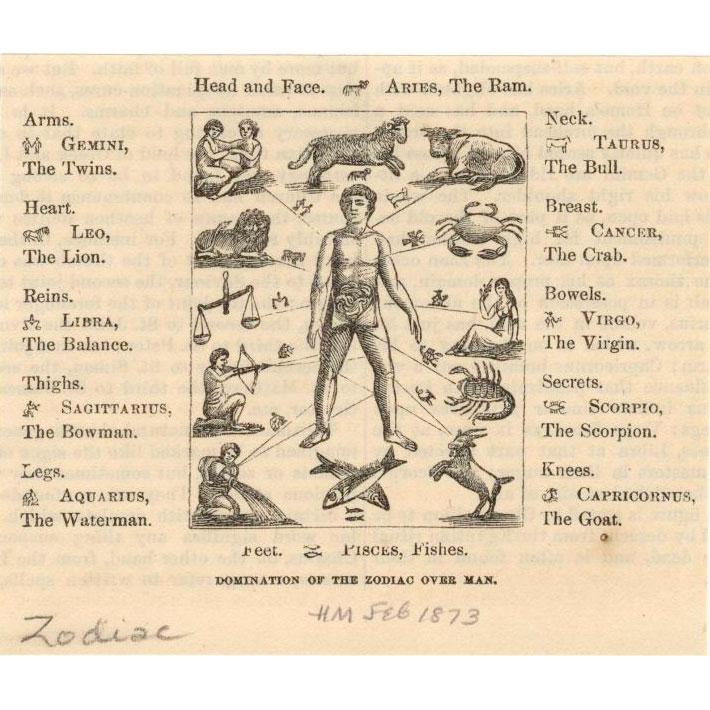 Head and Face. ARIES, The Ram.
Arms.
GEMINI,
The Twins.
Heart.
LEO,
The Lion.
Reins.
LIBRA,
The Balance.
Thighs.
SAGITTARIUS,
The Bowman.
Legs.
AQUARIUS,
The Waterman.
Neck.
TAURUS,
The Bull.
Breast.
CANCER,
The Crab.
Bowels.
VIRGO,
The Virgin.
Secrets.
SCORPIO,
The Scorpion.
Knees.
CAPRICORNUS,
The Goat.
Feet. PISCES, Fishes.
DOMINATION OF THE ZODIAC OVER MAN.
HM Feb 1873
Zodiac